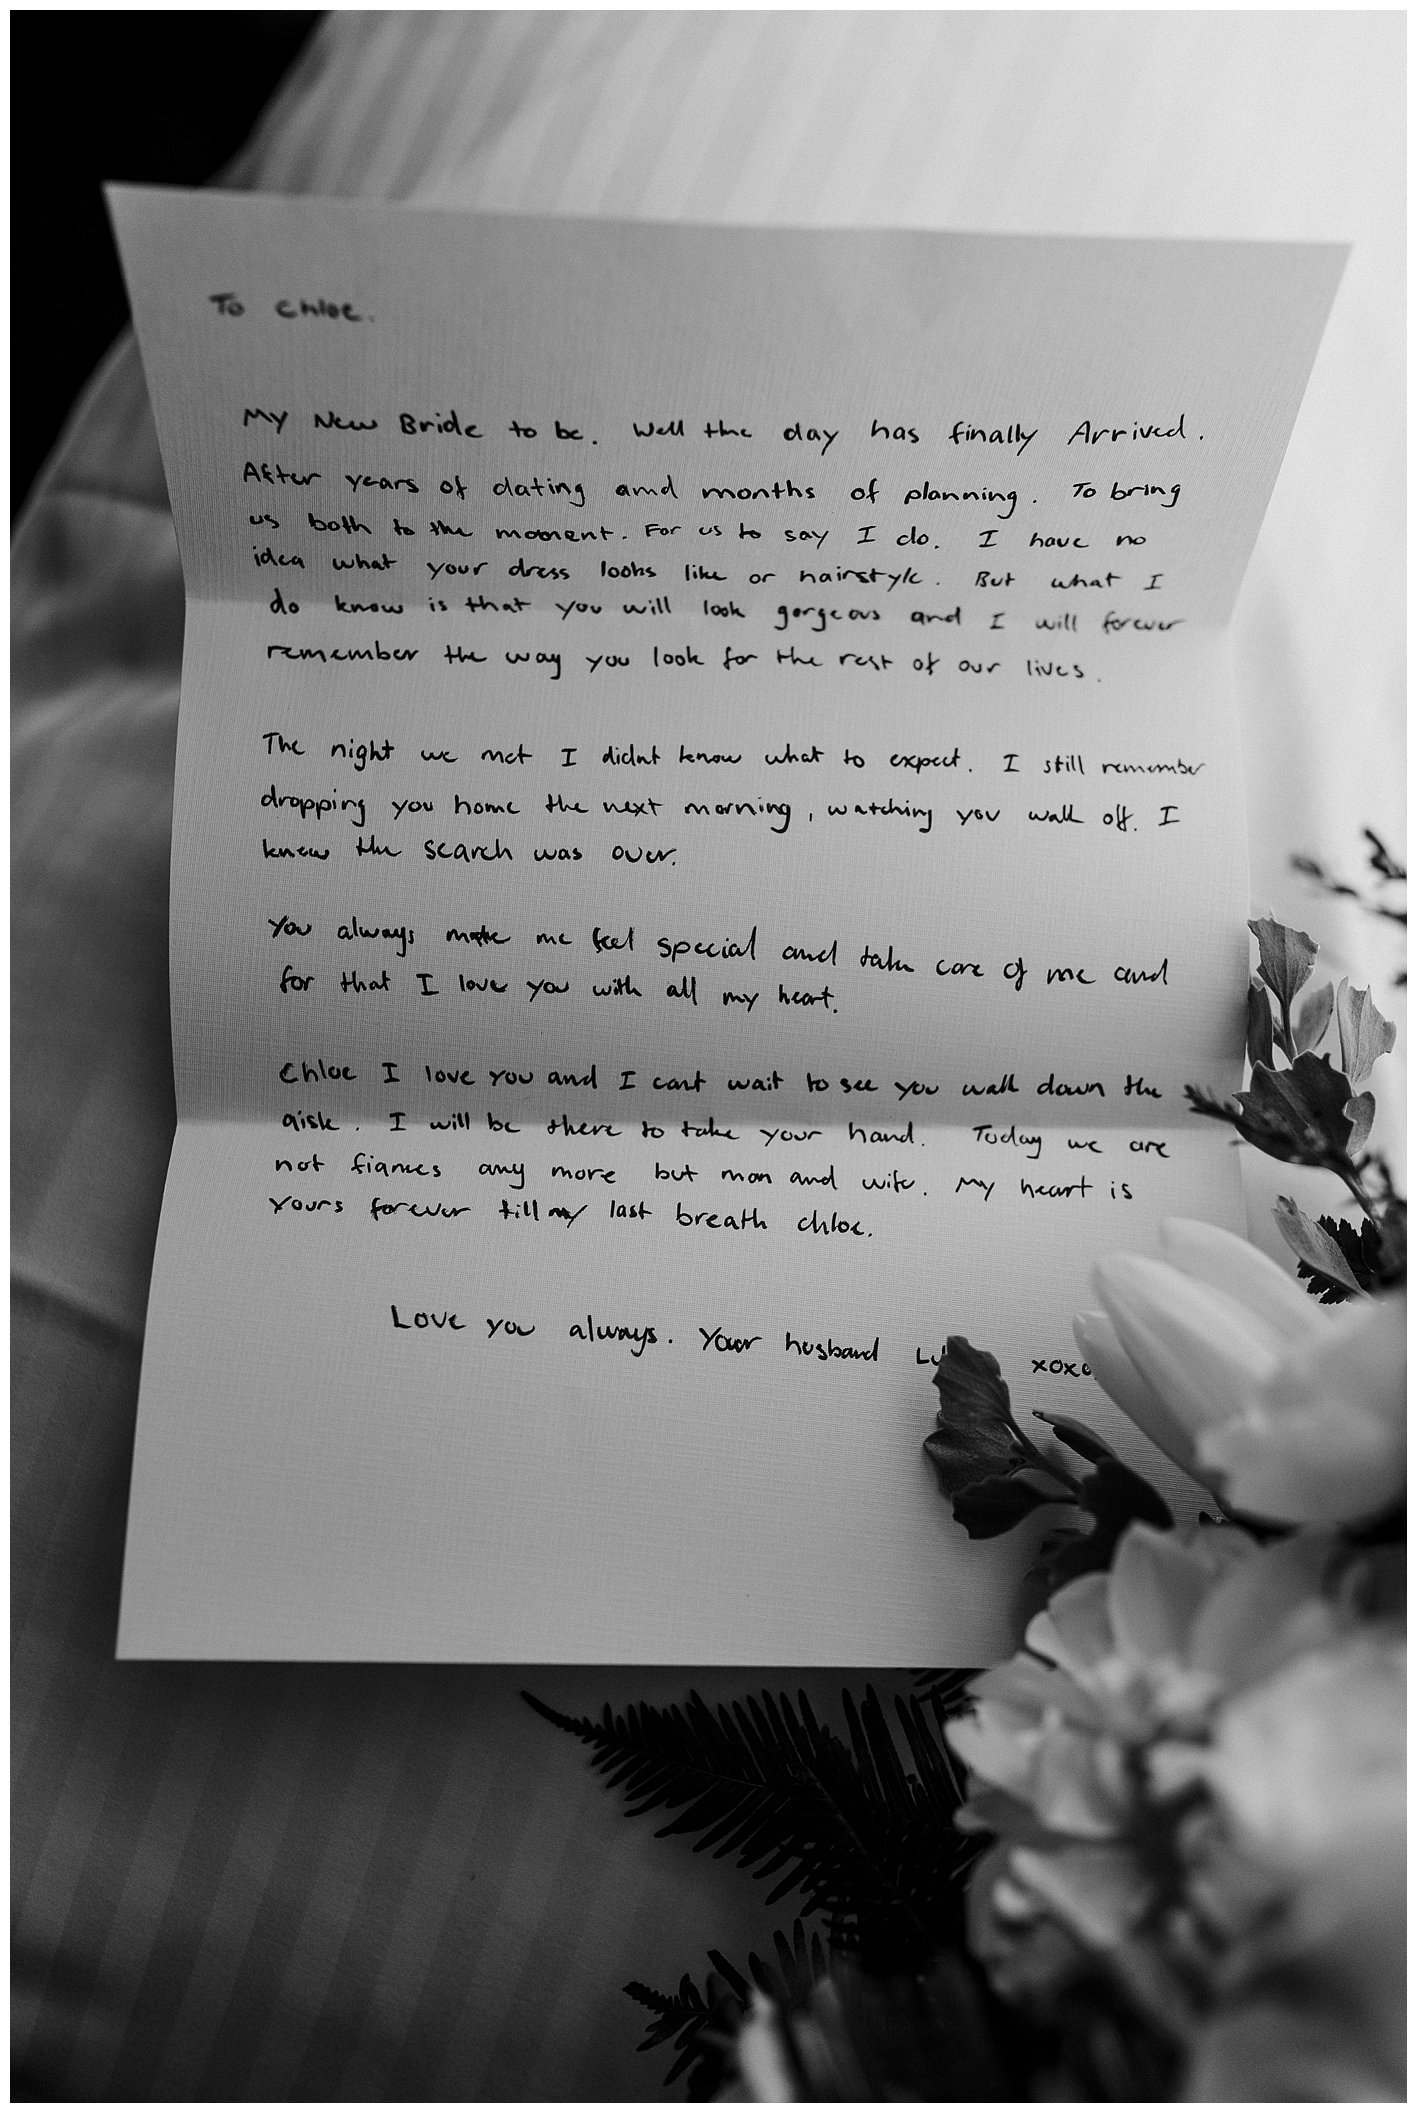 To Chloe.
My New Bride to be. Well the day has finally Arrived.
After years of dating and months of planning. To bring
us both to the moment. For us to say I do. I have no
idea what your dress looks like or hairstyle. But what I
do know is that you will look gorgeous and I will forever
remember the way you look for the rest of our lives.
The night we met I didnt know what to expect. I still remember
dropping you home the next morning, watching you walk off. I
knew the search was over.
You always make me feel special and take care of me and
for that I love you with all my heart.
Chloe I love you and I cant wait to see you walk down the
aisle. I will be there to take your hand. Today we are
not fiances any more but man and wife. My heart is
yours forever till my last breath chloe.
Love you always. Your husband xoxo